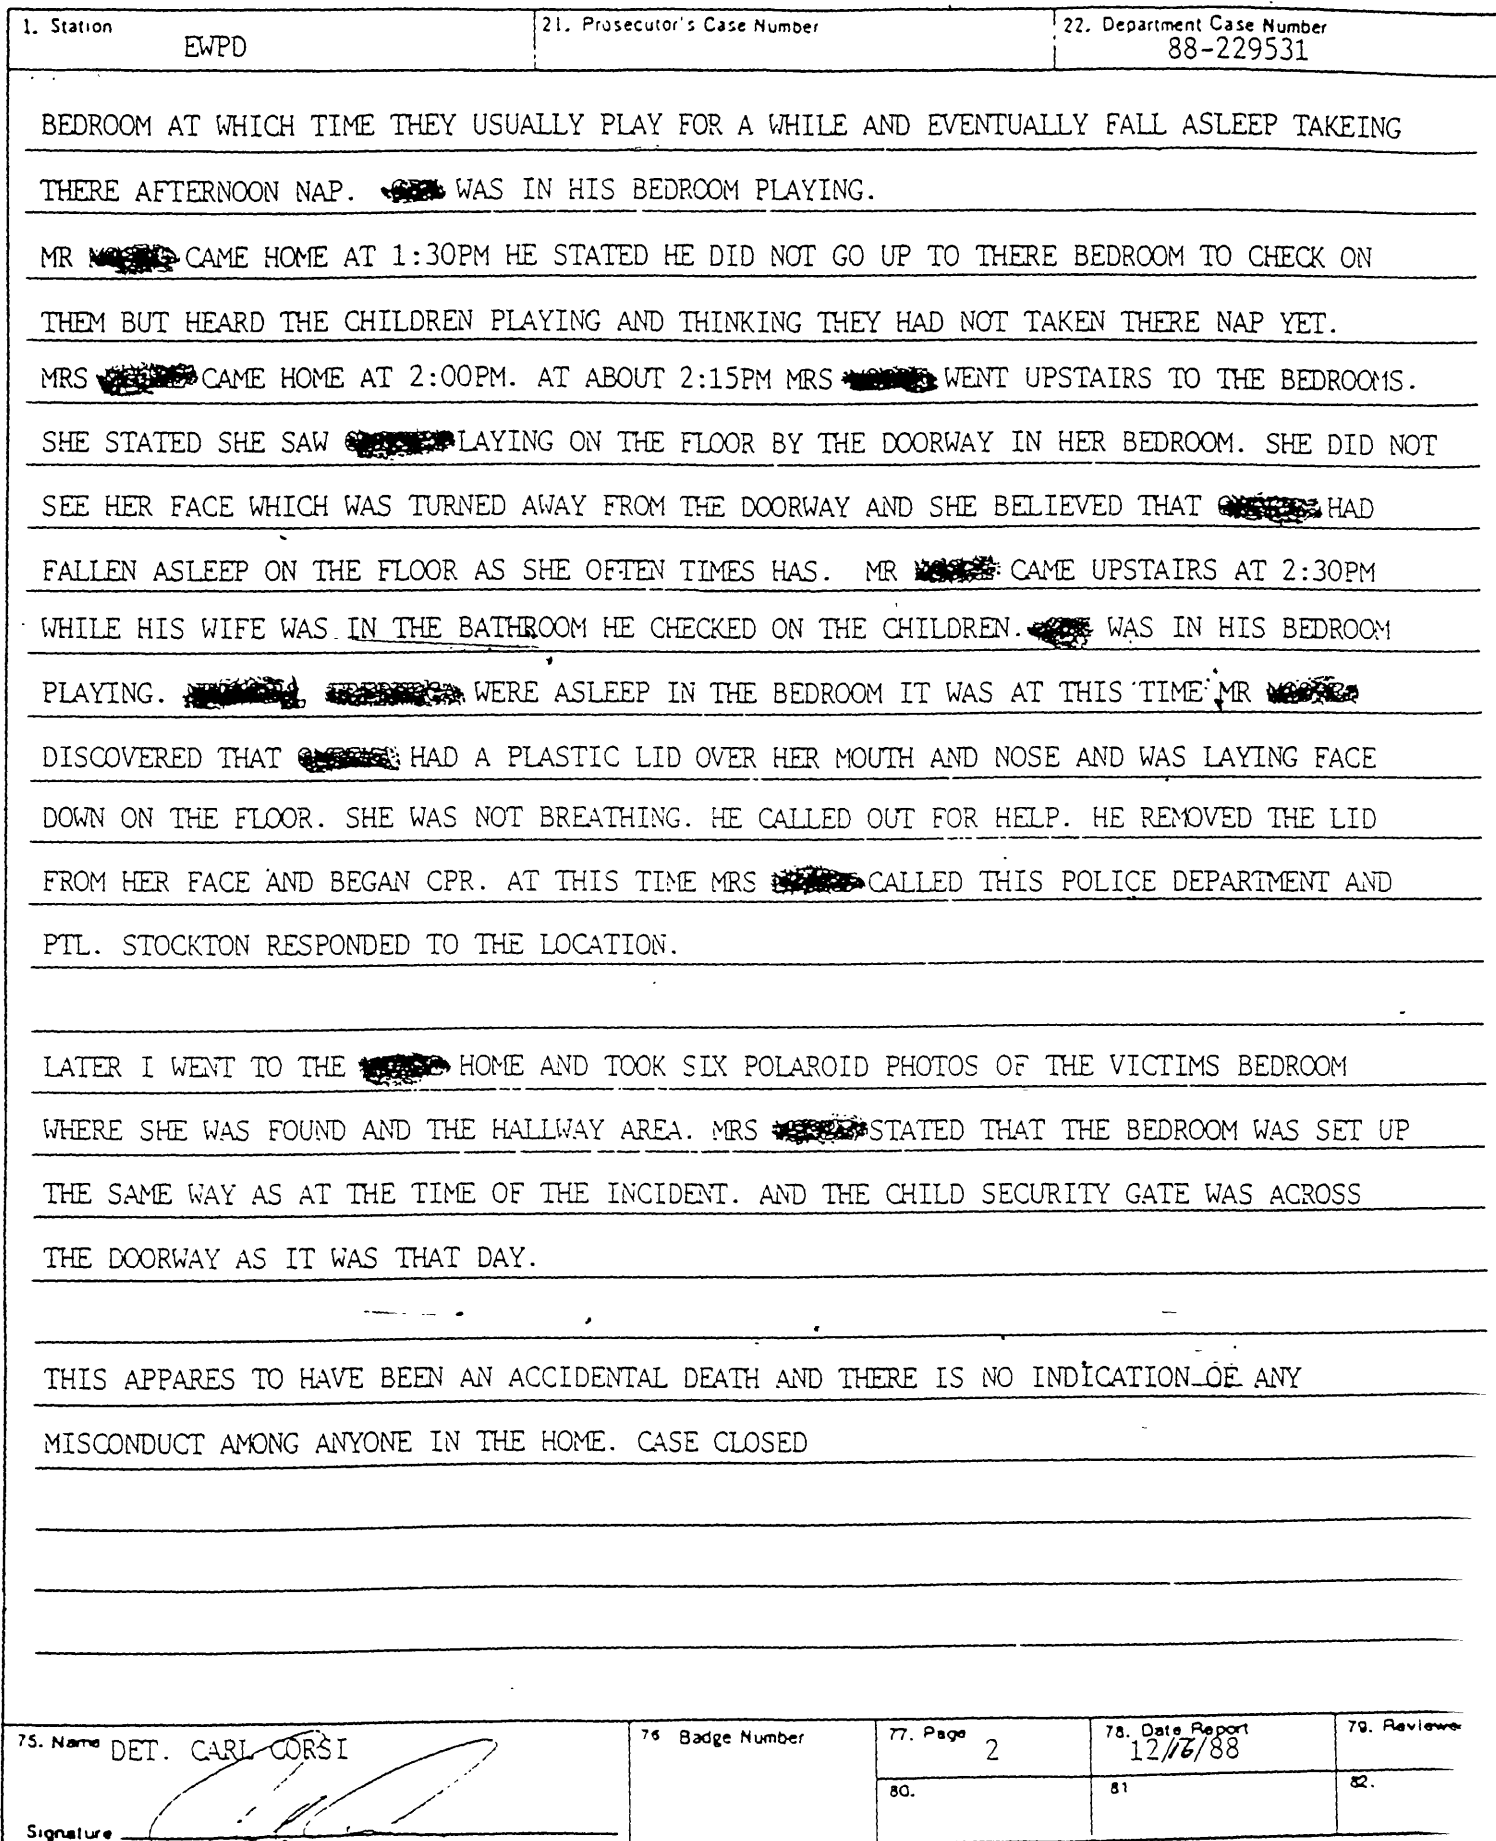 1. Station
EWPD
21. Prosecutor's Case Number
22. Department Case Number
88-229531
BEDROOM AT WHICH TIME THEY USUALLY PLAY FOR A WHILE AND EVENTUALLY FALL ASLEEP TAKEING
THERE AFTERNOON NAP. WAS IN HIS BEDROOM PLAYING.
MR CAME HOME AT 1:30PM HE STATED HE DID NOT GO UP TO THERE BEDROOM TO CHECK ON
THEM BUT HEARD THE CHILDREN PLAYING AND THINKING THEY HAD NOT TAKEN THERE NAP YET.
MRS CAME HOME AT 2:00PM. AT ABOUT 2:15PM MRS WENT UPSTAIRS TO THE BEDROOMS.
SHE STATED SHE SAW LAYING ON THE FLOOR BY THE DOORWAY IN HER BEDROOM. SHE DID NOT
SEE HER FACE WHICH WAS TURNED AWAY FROM THE DOORWAY AND SHE BELIEVED THAT HAD
FALLEN ASLEEP ON THE FLOOR AS SHE OFTEN TIMES HAS. MR CAME UPSTAIRS AT 2:30PM
WHILE HIS WIFE WAS IN THE BATHROOM HE CHECKED ON THE CHILDREN. WAS IN HIS BEDROOM
PLAYING. WERE ASLEEP IN THE BEDROOM IT WAS AT THIS TIME MR
DISCOVERED THAT HAD A PLASTIC LID OVER HER MOUTH AND NOSE AND WAS LAYING FACE
DOWN ON THE FLOOR. SHE WAS NOT BREATHING. HE CALLED OUT FOR HELP. HE REMOVED THE LID
FROM HER FACE AND BEGAN CPR. AT THIS TIME MRS CALLED THIS POLICE DEPARTMENT AND
PTL. STOCKTON RESPONDED TO THE LOCATION.
LATER I WENT TO THE HOME AND TOOK SIX POLAROID PHOTOS OF THE VICTIMS BEDROOM
WHERE SHE WAS FOUND AND THE HALLWAY AREA. MRS STATED THAT THE BEDROOM WAS SET UP
THE SAME WAY AS AT THE TIME OF THE INCIDENT. AND THE CHILD SECURITY GATE WAS ACROSS
THE DOORWAY AS IT WAS THAT DAY.
THIS APPARES TO HAVE BEEN AN ACCIDENTAL DEATH AND THERE IS NO INDICATION OF ANY
MISCONDUCT AMONG ANYONE IN THE HOME. CASE CLOSED
75. Name DET. CARL CORSI
76 Badge Number
77. Page
2
78. Date Report
12/16/88
79. Reviewe
80.
81
82.
Signature